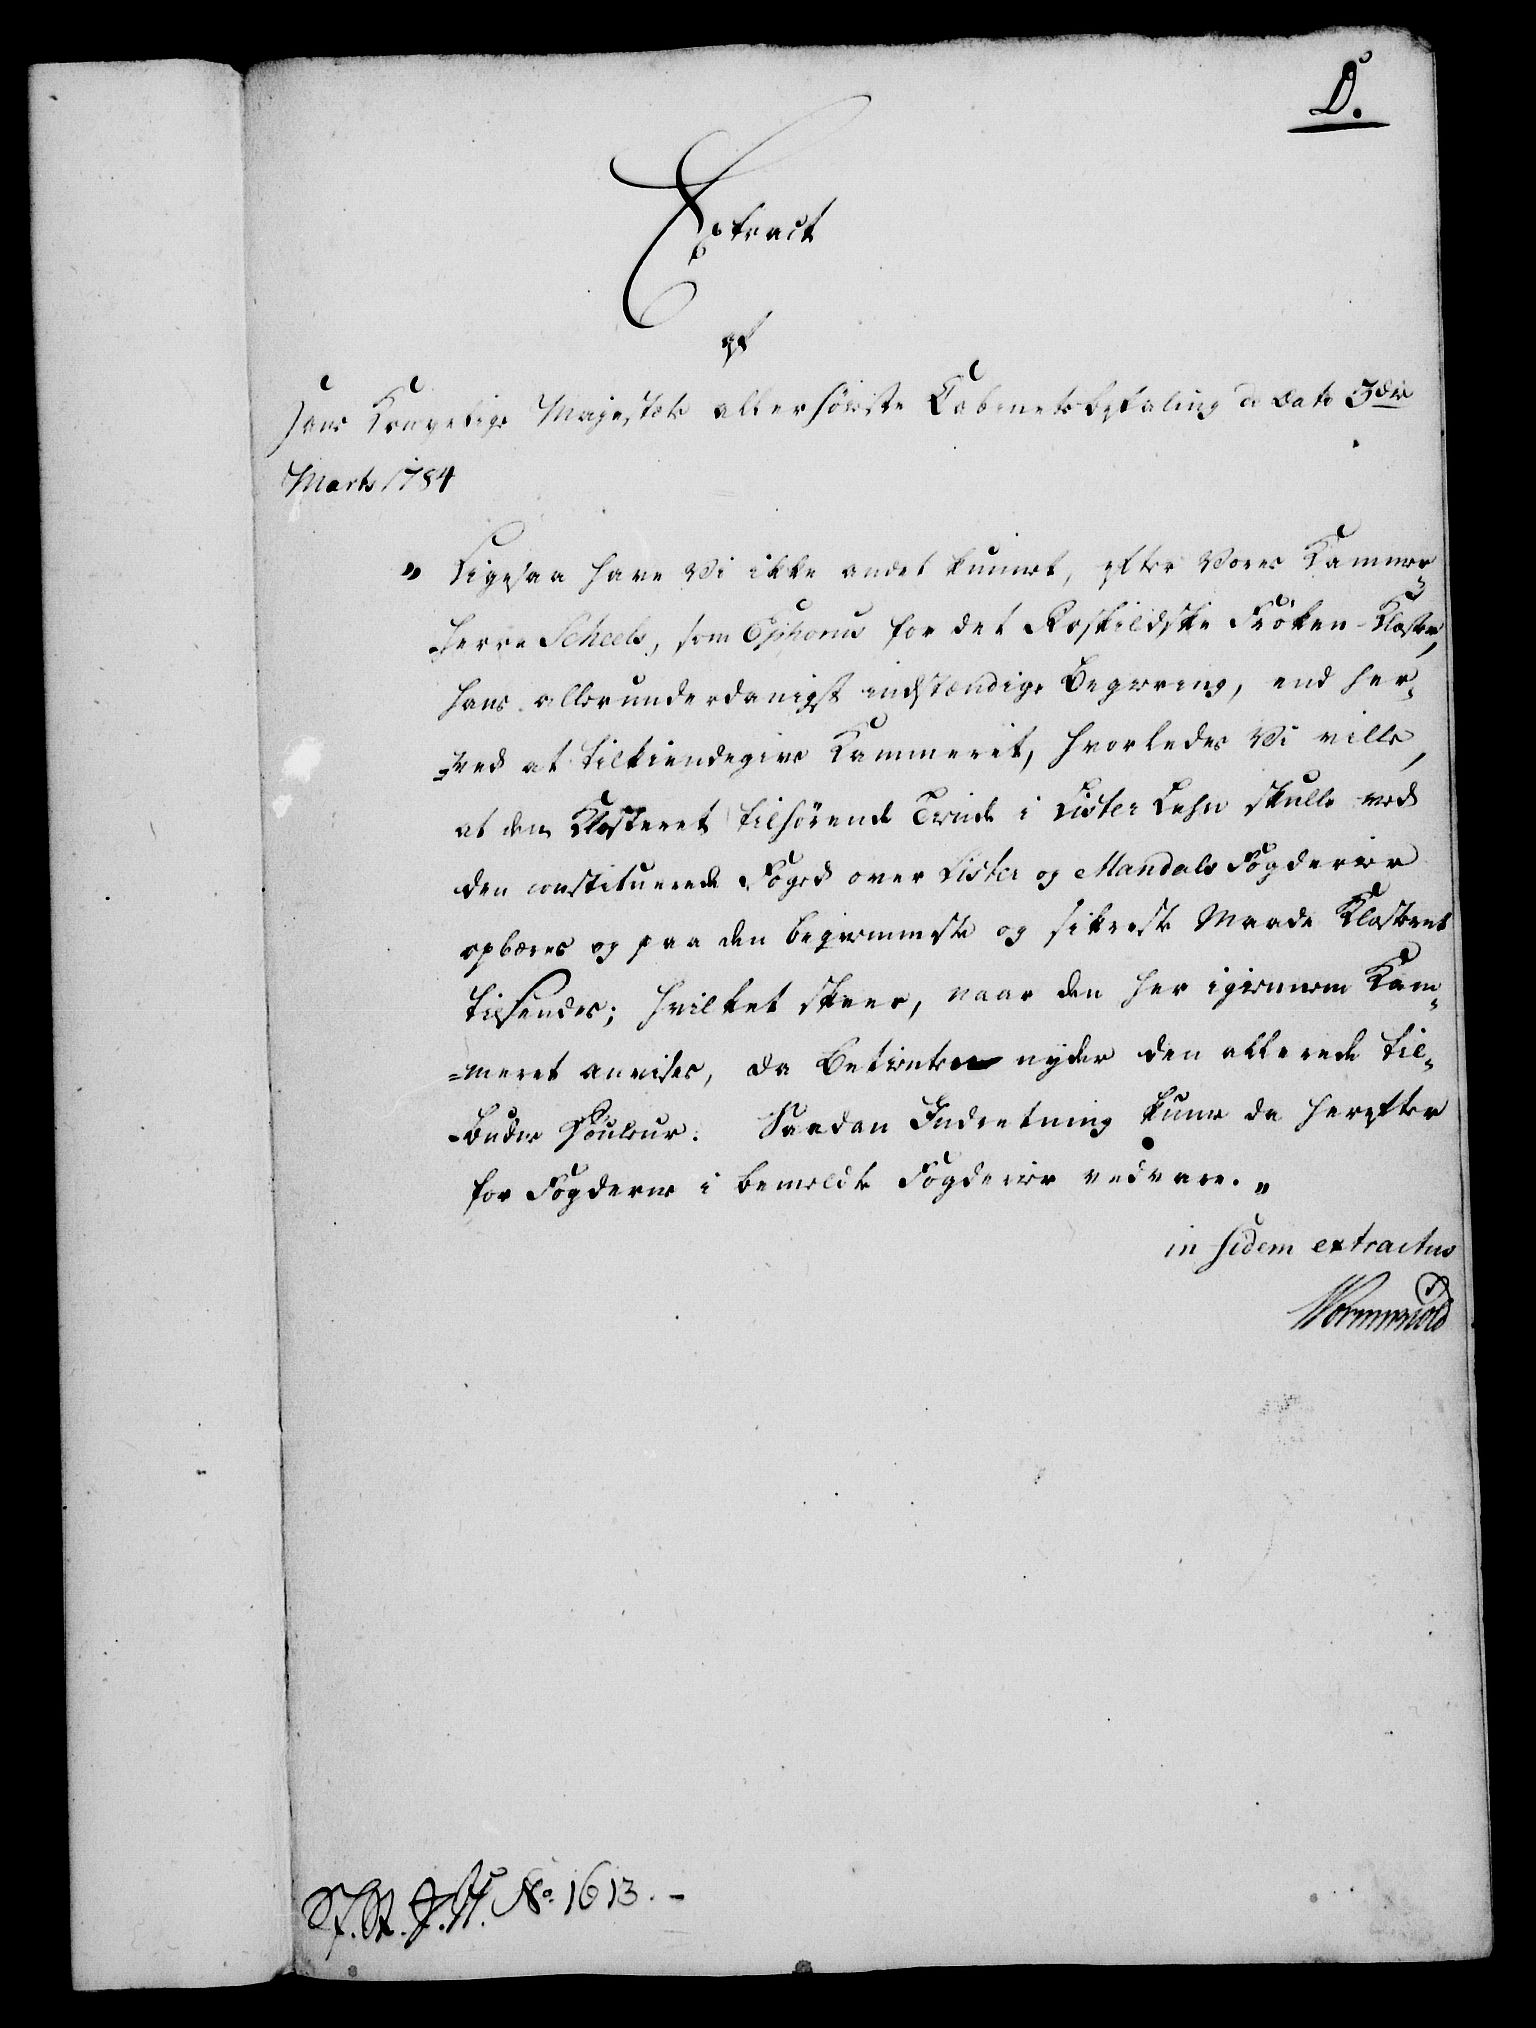 D.
Extract
af
Hans Kongelige Majestets allerhøieste Cabinetsbefaling de Dato 3die
Marts 1784
" Ligesaa have Vi ikke andet kunnet, efter Vores Kammer-
-herre Scheels, som Ephorus for det Roskildske Frøken-Kloster,
hans allerunderdanigst indstændige Begiering, end her-
=ved at tilkiendegive Kammeret, hvorledes Vi ville,
at den Klosteret tilhørende Tiende i Lister Lehn skulle ved
den constituerede Foged over Lister og Mandals Fogderier
opbæres og paa den beqvemmeste og sikreste Maade Klosteret
tilsendes; hvilket skeer, naar den her igiennem Kam-
=meret anvises, da Betienten nyder den allerede til-
-budne Douceur. Saadan Indretning kunne da herefter
for Fogderne i bemeldte Fogderier vedvare. "
in fidem extractus
Wormskiold
No. 1613. -